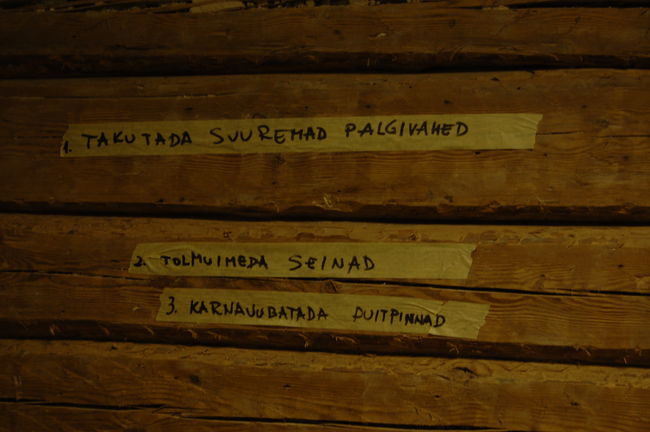 1. TAKUTADA SUUREMAD PALGIVAHED
2. TOLMUIMEDA SEINAD
3. KARNAUUBATADA PUITPINNAD